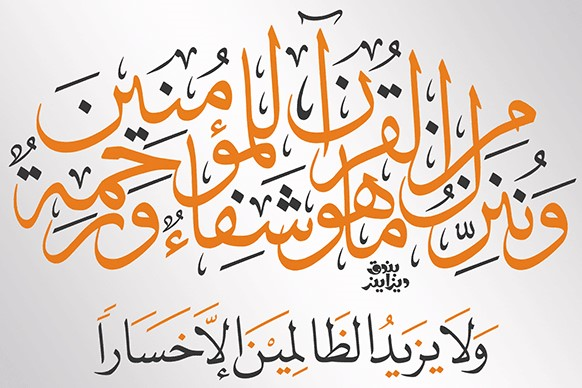 وَنُنَزِّلُ مِنَ الْقُرْآنِ مَا هُوَ شِفَاءٌ وَرَحْمَةٌ لِلْمُؤْمِنِينَ
وَلَا يَزِيدُ الظَّالِمِيْنَ إِلَّا خَسَارًا